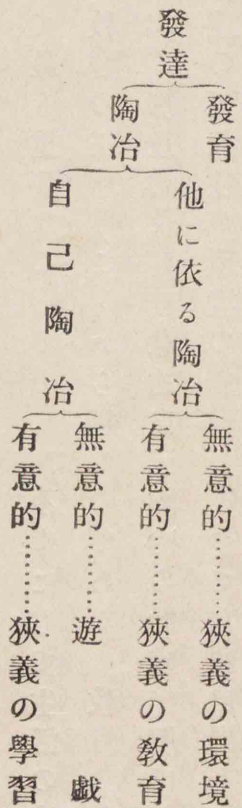 發達
發育
陶冶
他に依る陶冶
自己陶冶
無意的………狹義の環境
有意的………狹義の教育
無意的………遊戲
有意的………狹義の學習